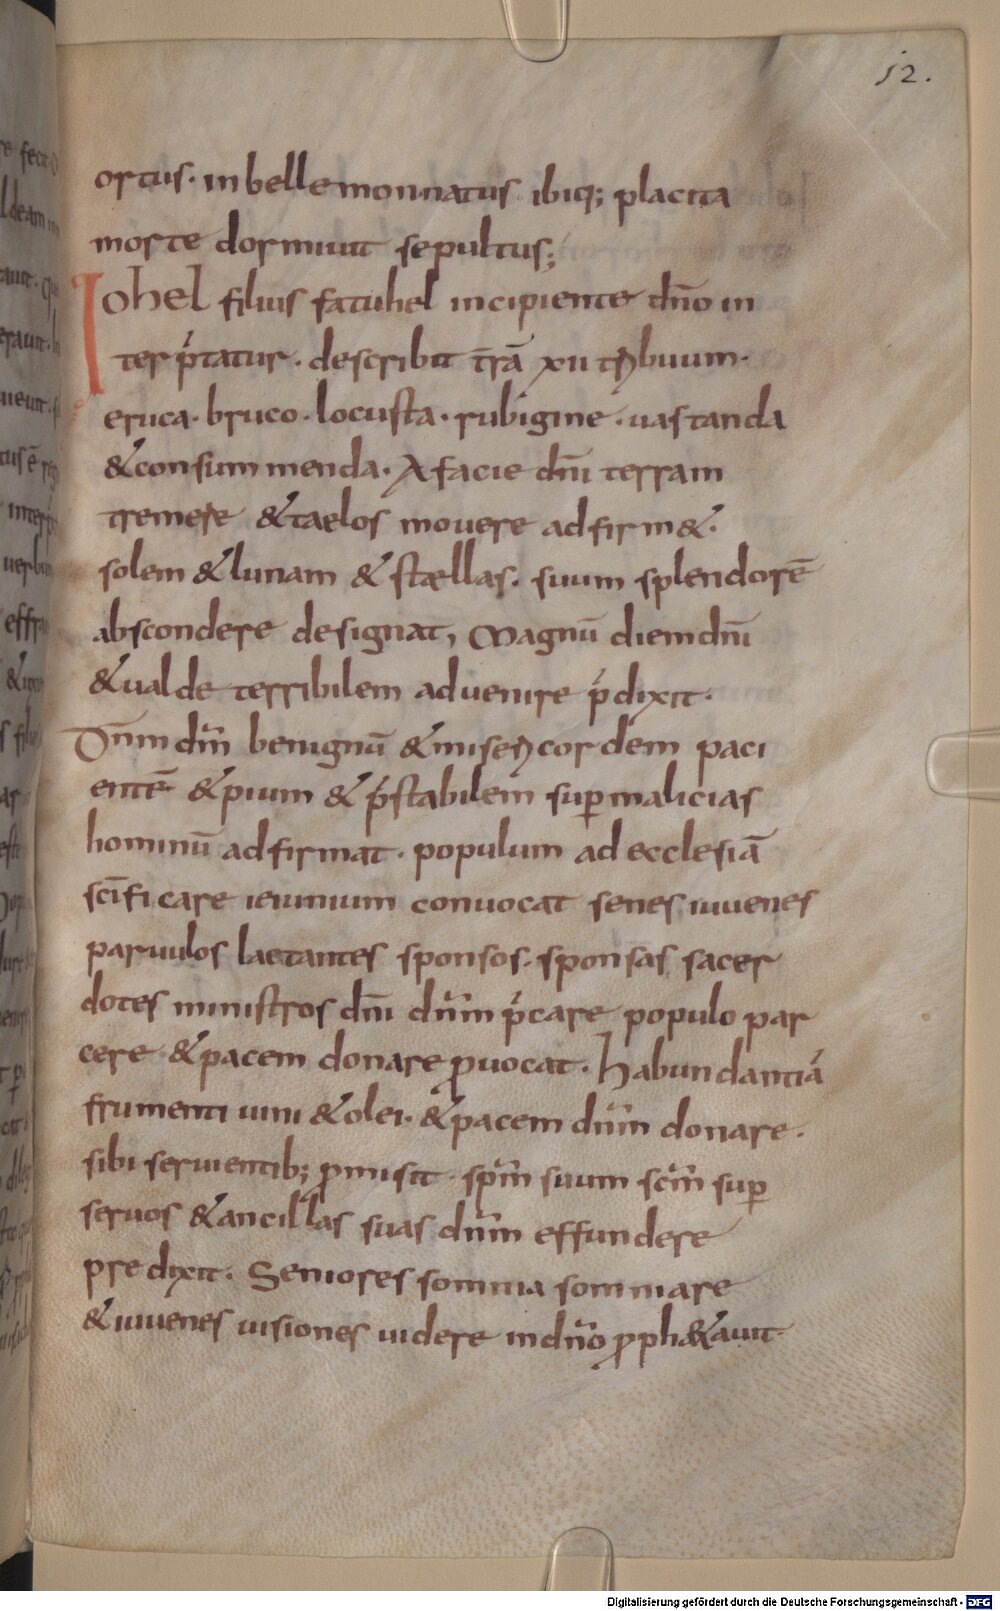 52.
ortus. in bellemonnatus ibiq; placita
morte dormiuit sepultus;
Iohel filius fatuhel incipiente dño in
terp̄tatur. describit t̄rā xii tribuum.
eruca. bruco. locusta. rubigine. uastanda
&consummenda. A facie dñi terram
tremere &taelos movere adfirm&.
solem &lunam &stællas. suum splendorē
abscondere designat, Magnū diem dñi
&ualde terribilem advenire p̄dixit.
Dñm dm̄ benignū &misericordem paci
entē &pium &p̄stabilem sup malicias
hominū adfirmat. populum ad ecclesiā
sc̄ificare ieiunium convocat senes iuvenes
parvulos lactantes sponsos. sponsas, sacer
dotes ministros dñi dñm p̄care populo par
cere &pacem donare ꝓuocat. habundantiā
frumenti uini &olei. &pacem dñm donare.
sibi servientib; ꝓmisit. sp̄m suum sc̄m sup
seruos &ancillas suas dñm effundere
predixit. Seniores somnia somniare
&iuvenes uisiones uidere in dño ꝓph&auit.
Digitalisierung gefördert durch die Deutsche Forschungsgemeinschaft - DFG